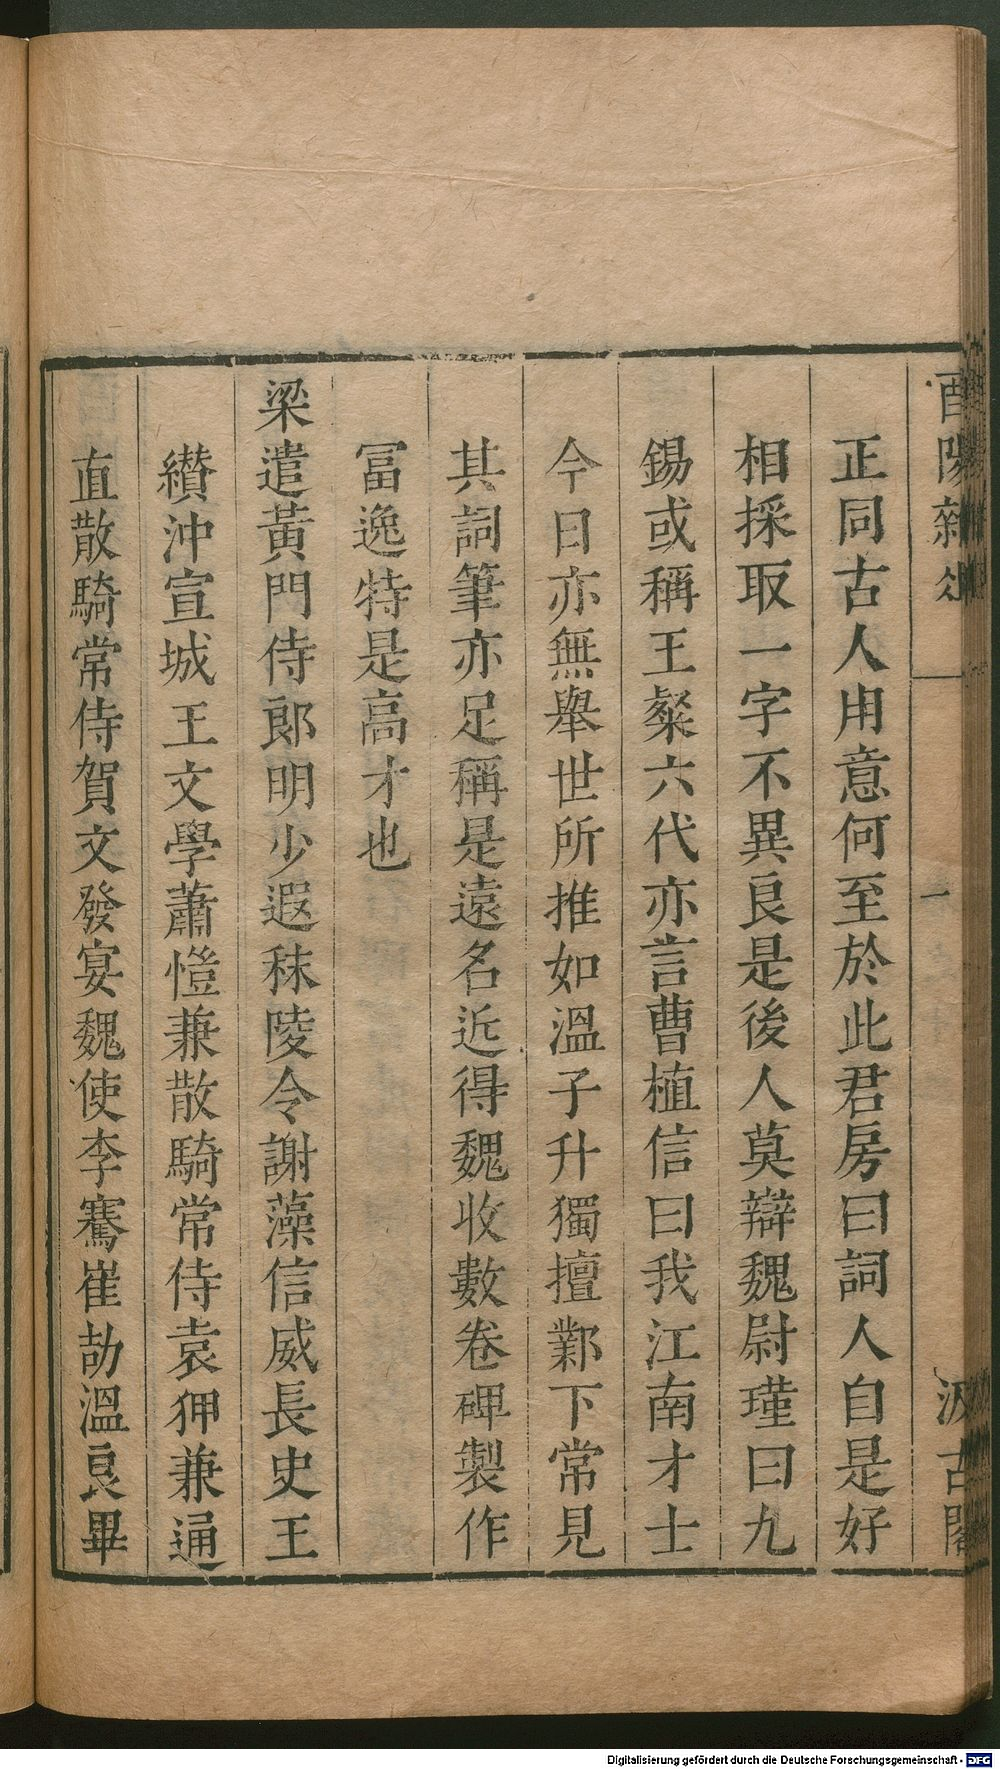 酉陽雜俎 一 汲古閣
正同古人用意何至於此君房曰詞人自是好
相採取一字不異良是後人莫辯魏尉瑾曰九
錫或稱王粲六代亦言曹植信曰我江南才士
今日亦無舉世所推如溫子升獨擅鄴下常見
其詞筆亦足稱是遠名近得魏收數卷碑製作
冨逸特是高才也
梁遣黃門侍郎明少遐秣陵令謝藻信威長史王
纘沖宣城王文學蕭愷兼散騎常侍袁狎兼通
直散騎常侍賀文發宴魏使李騫崔劼溫良畢
Digitalisierung gefördert durch die Deutsche Forschungsgemeinschaft - DFG